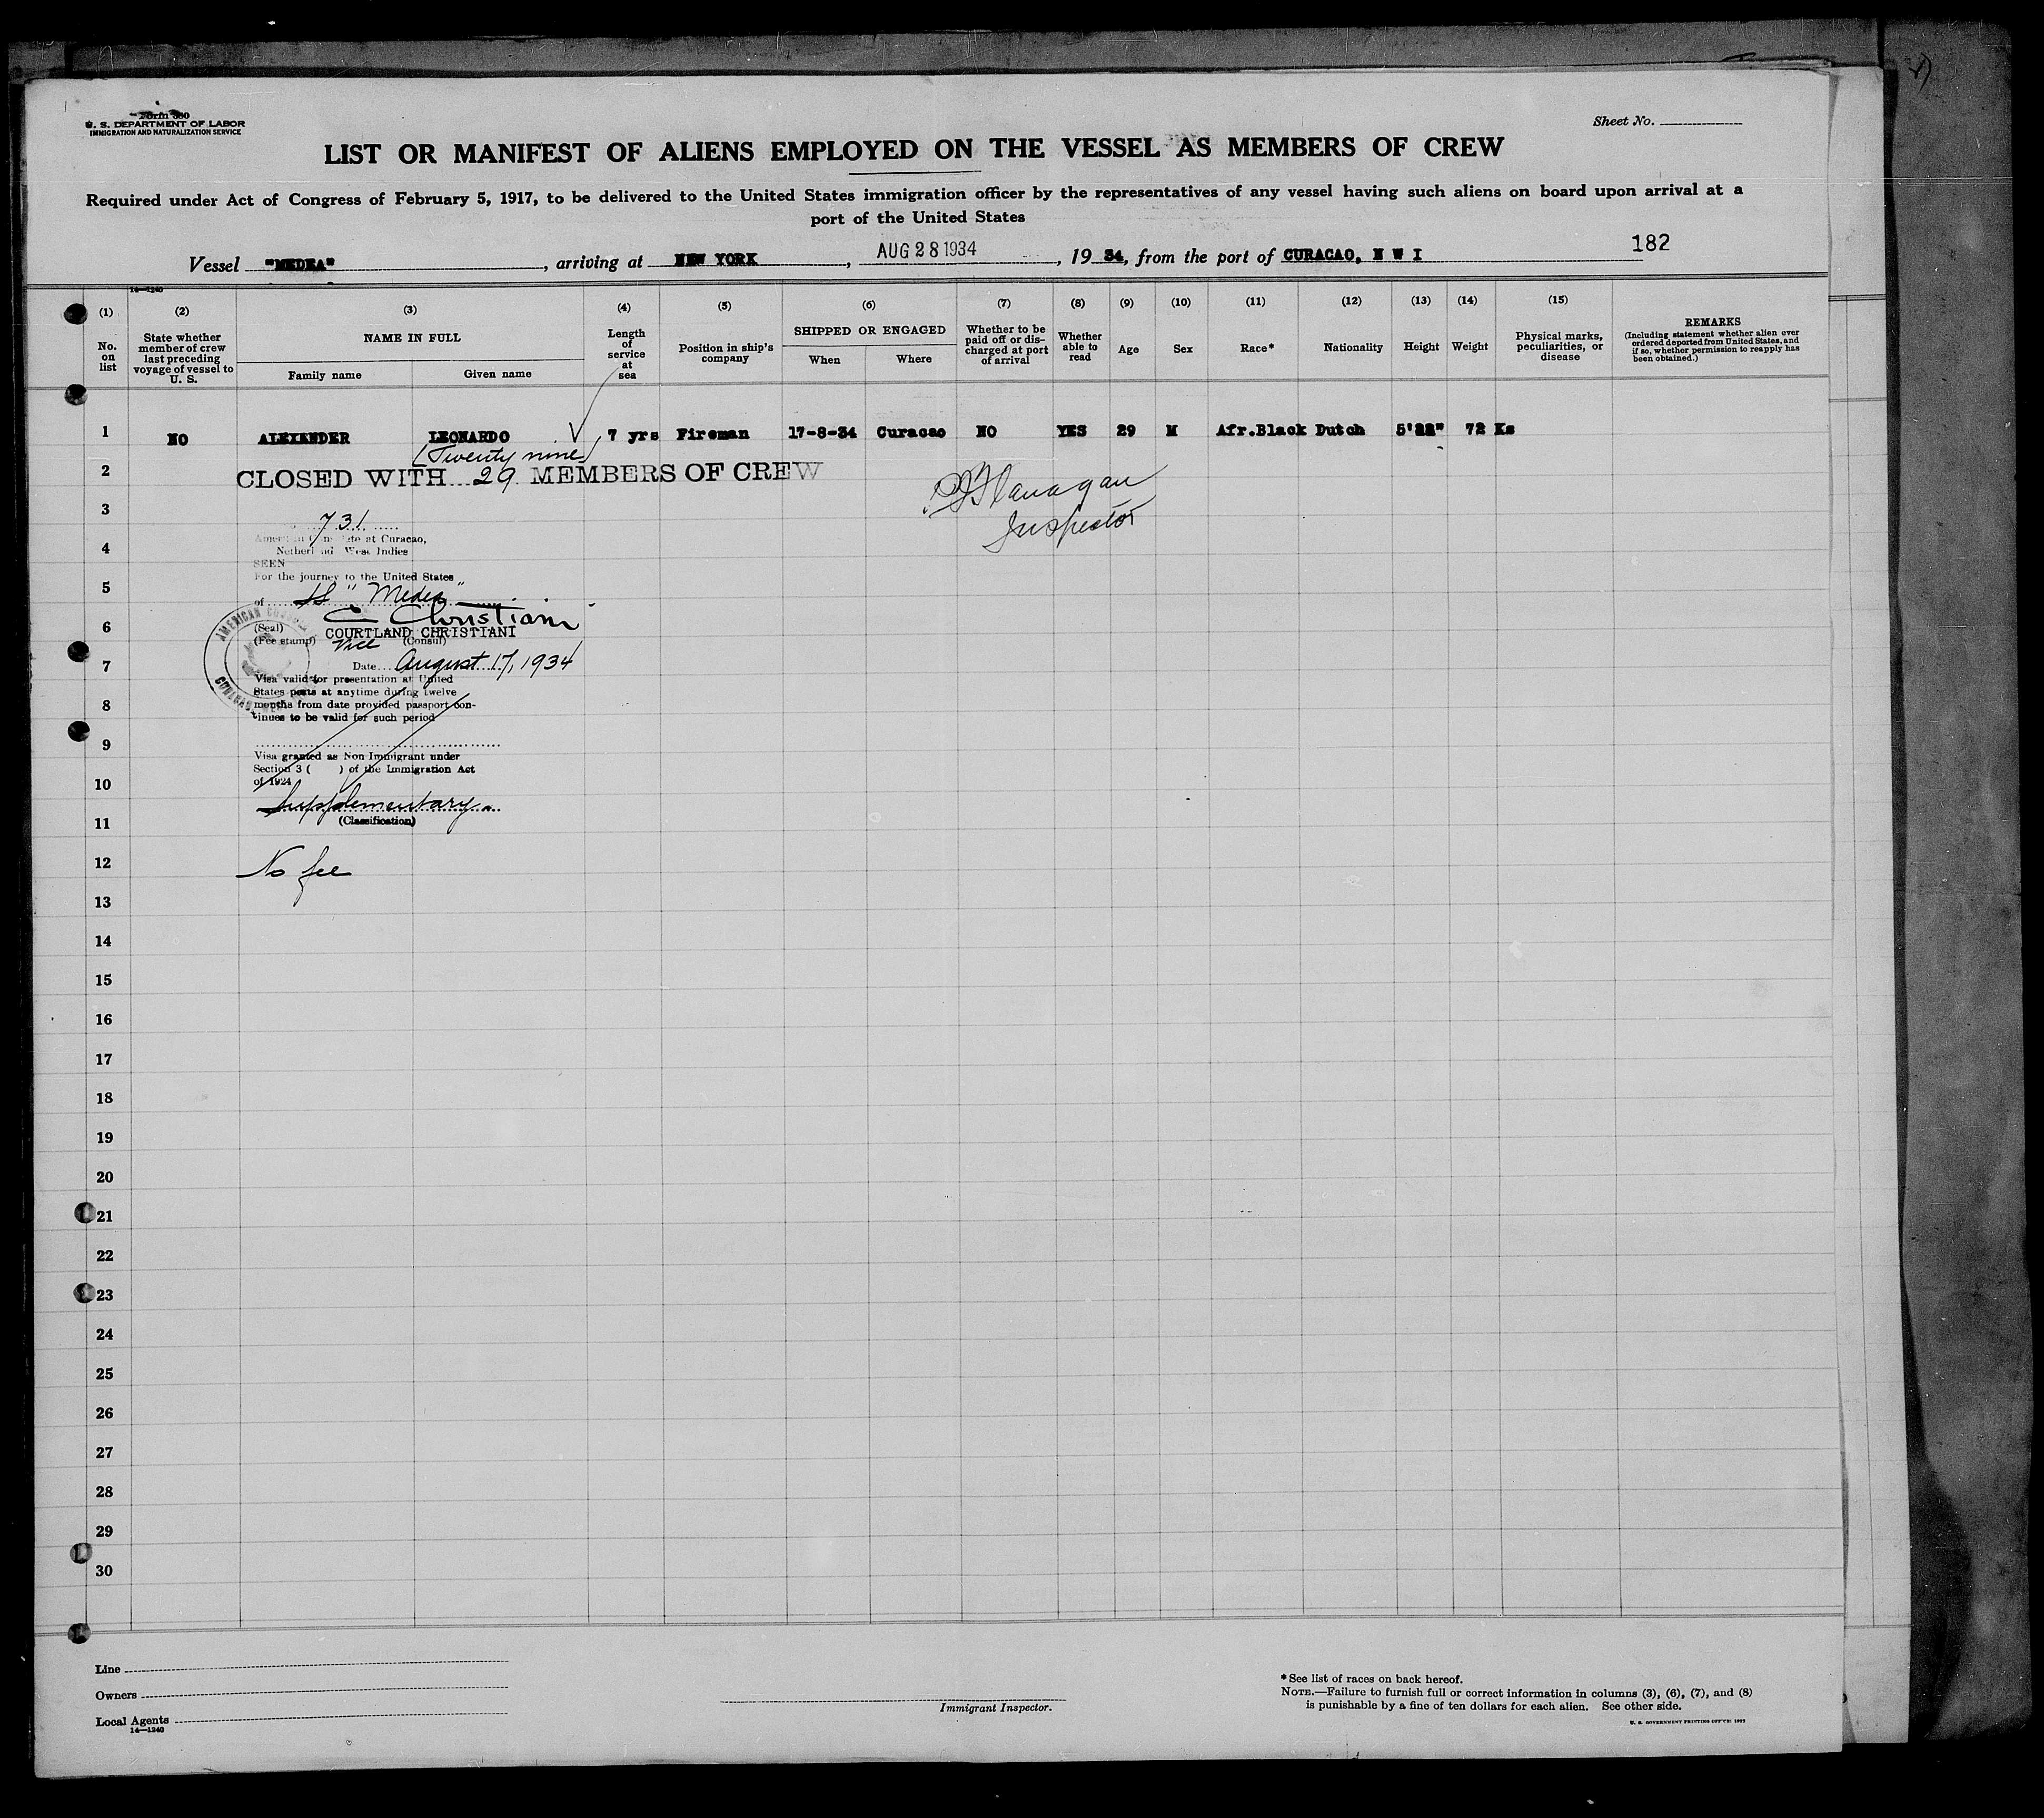 Form 680
U. S. DEPARTMENT OF LABOR
IMMIGRATION AND NATURALIZATION SERVICE
Sheet No.
LIST OR MANIFEST OF ALIENS EMPLOYED ON THE VESSEL AS MEMBERS OF CREW
Required under Act of Congress of February 5, 1917, to be delivered to the United States immigration officer by the representatives of any vessel having such aliens on board upon arrival at a
port of the United States
Vessel "MEDEA", arriving at NEW YORK, AUG 28 1934, 19 34, from the port of CURACAO, N W I 182
14—1240
(1) (2) (3) (4) (5) (6) (7) (8) (9) (10) (11) (12) (13) (14) (15)
No. on list
State whether member of crew last preceding voyage of vessel to U. S.
NAME IN FULL
Family name Given name
Length of service at sea
Position in ship's company
SHIPPED OR ENGAGED
When Where
Whether to be paid off or discharged at port of arrival
Whether able to read
Age
Sex
Race*
Nationality
Height
Weight
Physical marks, peculiarities, or disease
REMARKS
(Including statement whether alien ever ordered deported from United States, and if so, whether permission to reapply has been obtained.)
1 NO ALEXANDER LEONARDO 7 yrs Fireman 17-8-34 Curacao NO YES 29 M Afr.Black Dutch 72 Ks
(Twenty nine)
2 CLOSED WITH 29 MEMBERS OF CREW
Flanagan
Inspector
3 731
American Consulate at Curacao,
4 Netherland West Indies
SEEN
5 For the journey to the United States
of SS "Medea"
C Christiani
6 (Seal) COURTLAND CHRISTIANI
(Fee stamp) Vice (Consul)
7 Date August 17, 1934
AMERICAN
Visa valid for presentation at United
States ports at anytime during twelve
8 months from date provided passport con-
tinues to be valid for such period
9
Visa granted as Non Immigrant under
Section 3 ( ) of the Immigration Act
10 of 1924
Supplementary
11 (Classification)
12 No fee
13
14
15
16
17
18
19
20
21
22
23
24
25
26
27
28
29
30
Line
Owners
Local Agents
14—1240
Immigrant Inspector.
*See list of races on back hereof.
NOTE.—Failure to furnish full or correct information in columns (3), (6), (7), and (8)
is punishable by a fine of ten dollars for each alien. See other side.